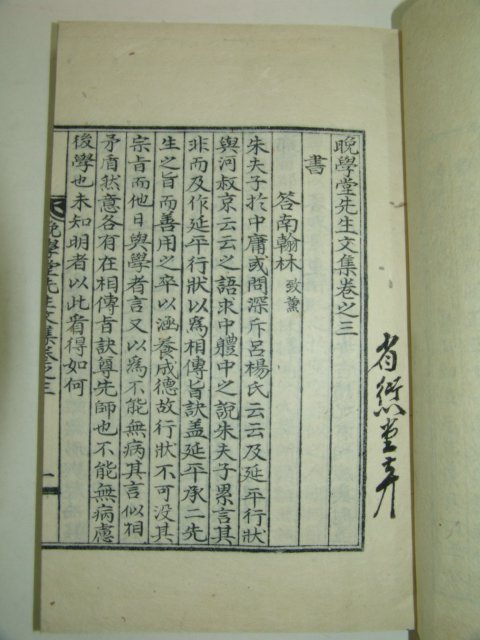 晩學堂先生文集卷之三
書
答南翰林 致薰
朱夫子於中庸或問深斥呂楊氏云云及延平行狀
與河叔京云云之語求中軆中之說朱夫子累言其
非而及作延平行狀以爲相傳旨訣盖延平承二先
生之旨而善用之卒以涵養成德故行狀不可沒其
宗旨而他日與學者言又以爲不能無病其言似相
矛盾然意各有在相傳旨訣尊先師也不能無病慮
後學也未知明者以此看得如何
晩學堂先生文集卷之三
一